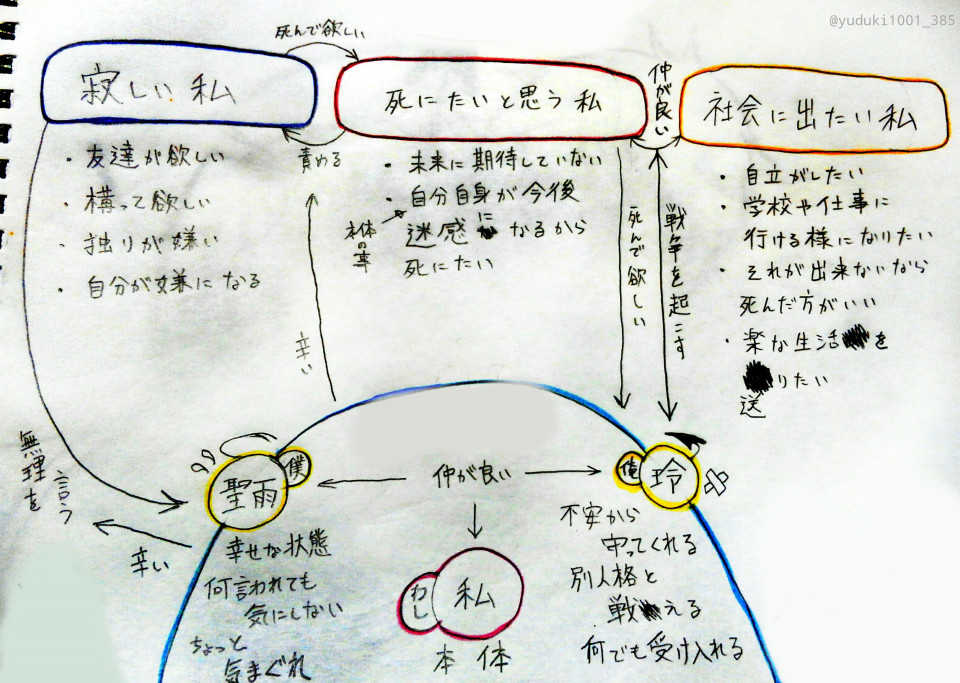 @yuduki1001_385
死んで欲しい
寂しい私
死にたいと思う私
仲が良い
社会に出たい私
責める
・友達が欲しい
・構って欲しい
・独りが嫌い
・自分が嫌になる
・未来に期待していない
・自分自身が今後
本体の事
迷惑になるから
死にたい
・自立がしたい
・学校や仕事に
行ける様になりたい
・それが出来ないなら
死んだ方がいい
・楽な生活を
送りたい
死んで欲しい
戦争を起こす
辛い
無理を言う
辛い
聖雨
僕
仲が良い
俺
玲
幸せな状態
何言われても
気にしない
ちょっと
気まぐれ
わし
私
本体
不安から
守ってくれる
別人格と
戦える
何でも受け入れる